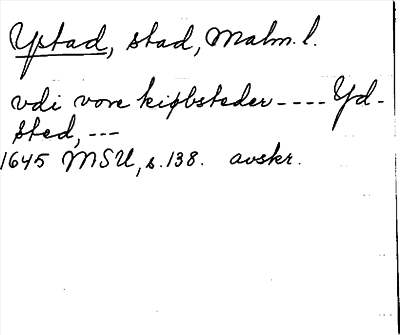 Ystad, stad, Malm. l.
vdi vore kiøbsteder ---- Yd-
sted, ---
1645 MSU, s. 138. avskr.